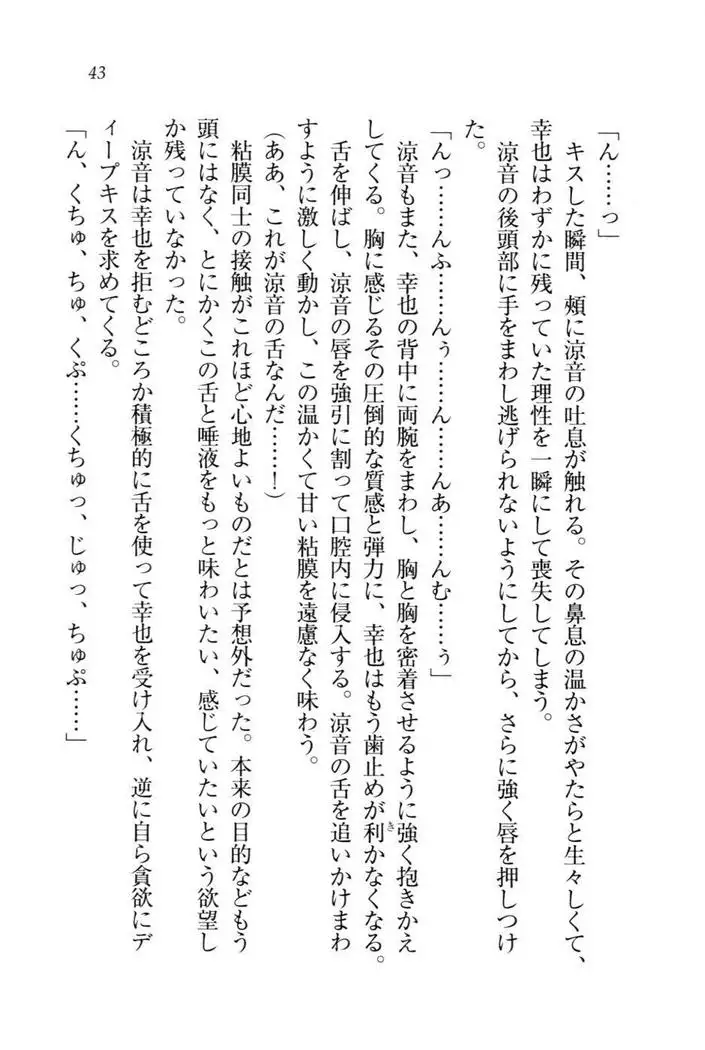 43
「ん……っ」
キスした瞬間、頰に涼音の吐息が触れる。その鼻息の温かさがやたらと生々しくて、
幸也はわずかに残っていた理性を一瞬にして喪失してしまう。
涼音の後頭部に手をまわし逃げられないようにしてから、さらに強く唇を押しつけ
た。
「んっ……んふ……んぅ……ん……んあ……んむ……ぅ」
涼音もまた、幸也の背中に両腕をまわし、胸と胸を密着させるように強く抱きかえ
してくる。胸に感じるその圧倒的な質感と弾力に、幸也はもう歯止めが利かなくなる。
舌を伸ばし、涼音の唇を強引に割って口腔内に侵入する。涼音の舌を追いかけまわ
すように激しく動かし、この温かくて甘い粘膜を遠慮なく味わう。
(ああ、これが涼音の舌なんだ……!)
粘膜同士の接触がこれほど心地よいものだとは予想外だった。本来の目的などもう
頭にはなく、とにかくこの舌と唾液をもっと味わいたい、感じていたいという欲望し
か残っていなかった。
涼音は幸也を拒むどころか積極的に舌を使って幸也を受け入れ、逆に自ら貪欲にデ
ィープキスを求めてくる。
「ん、くちゅ、ちゅ、くぷ……くちゅっ、じゅっ、ちゅぷ……」